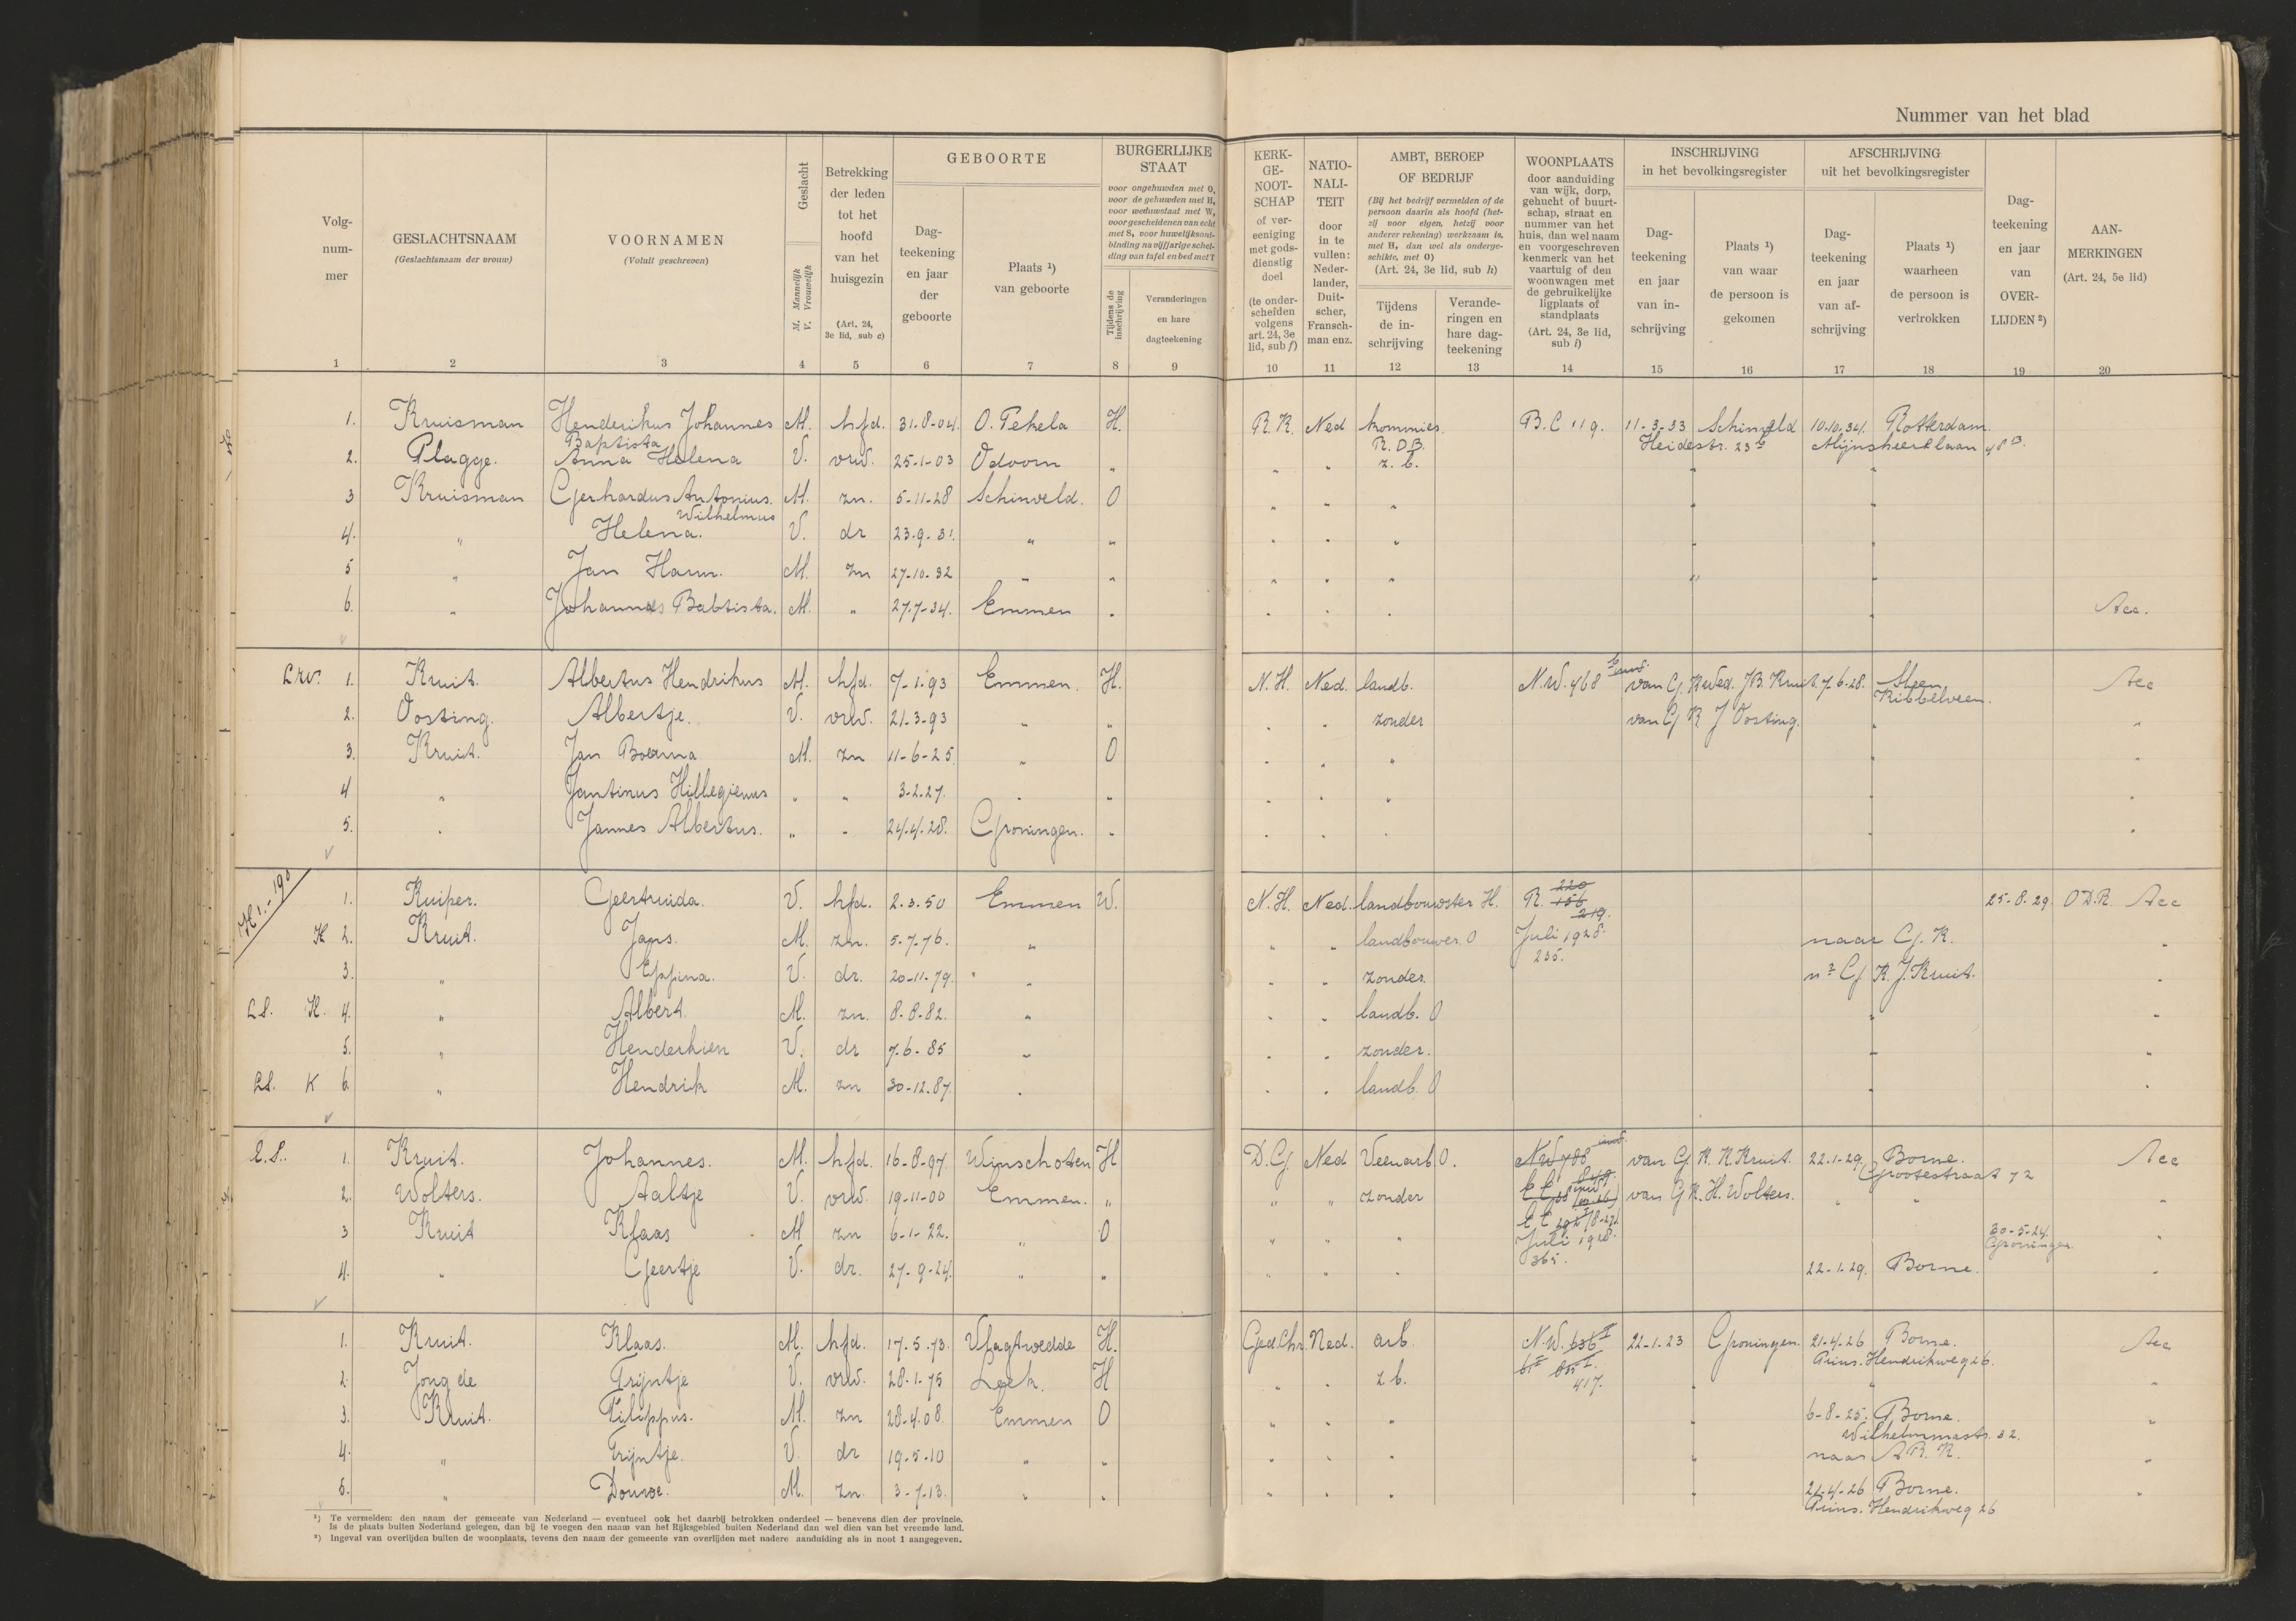 Nummer van het blad
Volg-
num-
mer
GESLACHTSNAAM
(Geslachtsnaam der vrouw)
VOORNAMEN
(Voluit geschreven)
Geslacht
M. Mannelijk
V. Vrouwelijk
Betrekking
der leden
tot het
hoofd
van het
huisgezin
(Art. 24,
3e lid, sub c)
GEBOORTE
Dag-
teekening
en jaar
der
geboorte
Plaats ¹)
van geboorte
BURGERLIJKE
STAAT
voor ongehuwden met O,
voor de gehuwden met H,
voor weduwstaat met W,
voor gescheidenen van echt
met S, voor huwelijksont-
binding na vijfjarige schei-
ding van tafel en bed met T
Tijdens de
inschrijving
Veranderingen
en hare
dagteekening
KERK-
GE-
NOOT-
SCHAP
of ver-
eeniging
met gods-
dienstig
doel
(te onder-
scheiden
volgens
art. 24, 3e
lid, sub f)
NATIO-
NALI-
TEIT
door
in te
vullen:
Neder-
lander,
Duit-
scher,
Fransch-
man enz.
AMBT, BEROEP
OF BEDRIJF
(Bij het bedrijf vermelden of de
persoon daarin als hoofd (het-
zij voor eigen, hetzij voor
anderer rekening) werkzaam is,
met H, dan wel als onderge-
schikte, met O)
(Art. 24, 3e lid, sub h)
Tijdens
de in-
schrijving
Verande-
ringen en
hare dag-
teekening
WOONPLAATS
door aanduiding
van wijk, dorp,
gehucht of buurt-
schap, straat en
nummer van het
huis, dan wel naam
en voorgeschreven
kenmerk van het
vaartuig of den
woonwagen met
de gebruikelijke
ligplaats of
standplaats
(Art. 24, 3e lid,
sub i)
INSCHRIJVING
in het bevolkingsregister
Dag-
teekening
en jaar
van in-
schrijving
Plaats ¹)
van waar
de persoon is
gekomen
AFSCHRIJVING
uit het bevolkingsregister
Dag-
teekening
en jaar
van af-
schrijving
Plaats ¹)
waarheen
de persoon is
vertrokken
Dag-
teekening
en jaar
van
OVER-
LIJDEN ²)
AAN-
MERKINGEN
(Art. 24, 5e lid)
1 2 3 4 5 6 7 8 9 10 11 12 13 14 15 16 17 18 19 20
1. Kruisman Henderikus Johannes M. hfd. 31-8-04. O. Pekela H. R.K. Ned kommies. B.C 119. 11-3-33 Schinveld 10.10.34. Rotterdam.
Baptista R.D.B. Heidestr. 23 Mijnsheerlaan 48 B.
2. Plagge. Anna Helena V. vrw. 25-1-03 Odoorn " " " z. b. " "
3 Kruisman Gerhardus Antonius. M. zn. 5-11-28 Schinveld. O " " " " "
Wilhelmus
4. " Helena. V. dr 23.9.31. " " " " " " "
5 " Jan Harm. M. zn 27-10-32 " " " " " " "
6. " Johannes Babtista. M. " 27.7-34. Emmen " " " " " Acc.
Lrw. 1. Kruit. Albertus Hendrikus M. hfd. 7-1.93 Emmen. H. N.H. Ned. landb. N.W. 468 van G.K. Wed. J.B. Kruit. 7-6-28. Sleen Acc
Kibbelveen.
2. Oosting. Albertje. V. vrw. 21-3-93 " " " " zonder van G K J Oosting. " "
3. Kruit. Jan Boelma M. zn 11-6-25. " O " " " " "
4 " Jantinus Hillegienus " " 3-2.27. " " " " " " "
5. " Jannes Albertus. " " 24.4.28. Groningen. " " " " " "
H 1.-190
1. Kuiper. Geertruida. V. hfd. 2.3.50 Emmen W. N.H. Ned. landbouwster H. R. 220 25-8.29. O.D.R. Acc
156
219.
H 2. Kruit. Jans. M. zn. 5-7.76. " " " landbouwer. O Juli 1928. naar G. K. "
235.
3. " Eppina. V. dr. 20-11-79. " " " zonder. nr G K. J. Kruit. "
LS. K. 4. " Albert. M. zn. 8-8-82. " " " landb. O " "
5. " Henderkien V. dr 7-6-85 " " " zonder. " "
LS. K 6. " Hendrik M. zn 30-12.87. " " " landb. O " "
L.S. 1. Kruit. Johannes. M. hfd. 16-8-97. Winschoten H D.G. Ned Veenarb O. N.W 788 van G K. K. Kruit. 22.1-29. Borne. Acc
Grootestraat 72
2. Wolters. Aaltje V. vrw. 19-11-00 Emmen. " " " zonder van G K. H. Wolters. " " "
3 Kruit Klaas M zn 6-1-22. " O " " " Juli 1928. 30-5-24. "
Groningen.
365.
4. " Geertje V. dr. 27-9-24. " " " " " 22-1.29. Borne. "
1. Kruit. Klaas. M. hfd. 17.5.73. Vlagtwedde H. Ged.Chr. Ned. arb N.W. 636 22-1-23 Groningen. 21-4-26 Borne. Acc
Prins. Hendrikweg 26.
2. Jong de Trijntje V. vrw. 28.1.75 Leek. H " " z b. 417. " " "
3. Kruit. Filippus. M. zn 28-4.08. Emmen O " " " " 6-8-25. Borne. "
Wilhelminastr. 32.
4. " Trijntje. V. dr 19-5-10 " " " " " " naar A.B.K. "
5. " Douwe. M. zn. 3-7.13. " " " " " " 21-4-26 Borne. "
Prins. Hendrikweg 26
¹) Te vermelden: den naam der gemeente van Nederland — eventueel ook het daarbij betrokken onderdeel — benevens dien der provincie.
Is de plaats buiten Nederland gelegen, dan bij te voegen den naam van het Rijksgebied buiten Nederland dan wel dien van het vreemde land.
²) Ingeval van overlijden buiten de woonplaats, tevens den naam der gemeente van overlijden met nadere aanduiding als in noot 1 aangegeven.